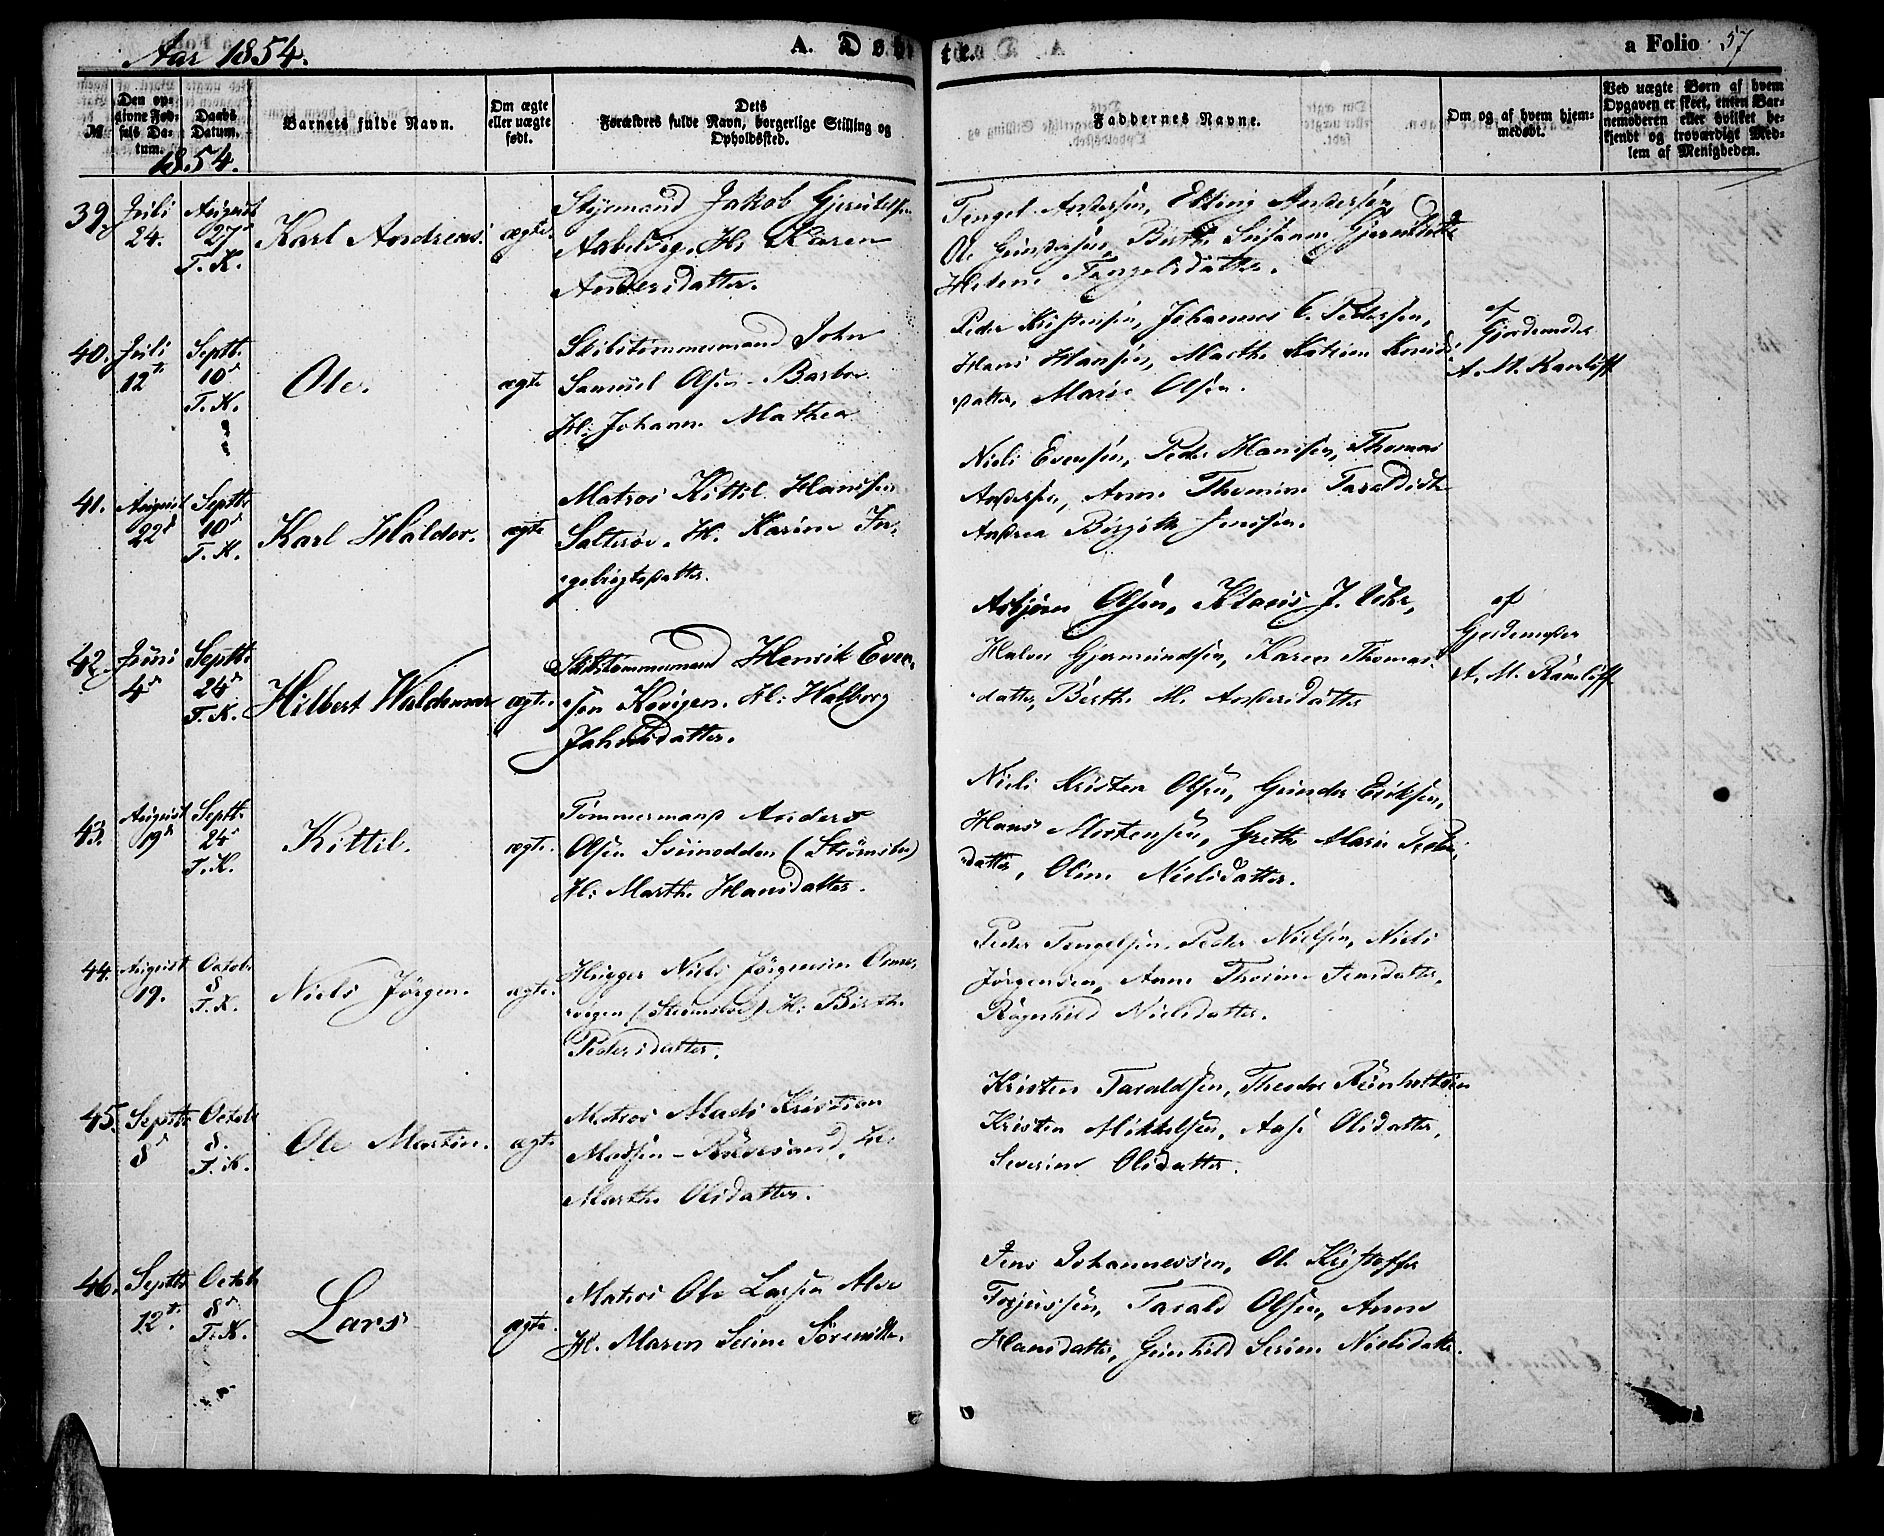 Aar 1854. A. Døbte. a Folio 57
№ Den opgivne Fødsels Datum. Daabs Datum. Barnets fulde Navn. Om ægte eller uægte født. Dets Forældres fulde Navn, borgerlige Stilling og Opholdssted. Faddernes Navne. Om og af hvem hjemmedøbt. Ved uægte Børn af hvem Opgaven er skeet, enten Barnemoderen eller hvilket bekjendt og troværdigt Medlem af Menigheden.
1854.
39. Juli 24. August 27 T. K. Karl Andreas. ægte.
Styrmand Jakob
H: Karen
Andersdatter.
Tengel Andersen, Andersen,
Ole
Helene Tengelsdatter.
40. Juli 12te Septb. 10d T. K. Ole. ægte
Skibstømmermand John
Samuel Olsen Barbo
H: Johanne Mathea
Peder Kristensen, Johannes C. Pedersen,
Hans Hansen, Marthe Katrine
datter, Marie Olsen.
af
Gjordemoder
A. M. Ranløff
41. August 22d Septb. 10d T. K. Karl Haldor. ægte
Matros Kittil Hansen
Salterøe. H. Karine In-
gebrigtsdatter.
Niels Evensen, Peder Hansen, Thomas
Andersen, Anne Thomine Taraldsdtr
Andrea Birgitte Jensen.
42. Juni 4d Septb. 24d T. K. Hilbert Waldemar ægte.
Skibstømmermand Henrik Even-
sen H: Halborg
Jahnsdatter.
Asbjørn Olsen, Klaus J.
Halvor Gjermundsen, Karen Thomas-
datter, Berthe M. Andersdatter
af
Gjordemoder
A. M. Ranløff
43. August 19d Septb. 24d T. K. Kittil. ægte.
Tømmermand Anders
Olsen Sviinodden (Strømsbo)
H: Marthe Hansdatter.
Niels Kristen Olsen, Gunder Eriksen,
Hans Mortensen, Grethe Marie Peders-
datter, Oline Nielsdatter.
44. August 19. Octob. 8 T. K. Niels Jörgen. ægte.
Niels Jörgensen
H: Birthe
Pedersdatter.
Peder Tengelsen, Peder Nielsen, Niels
Jørgensen, Anne Thorine Jensdatter,
Ragnhild Nielsdatter.
45. Septbr 8d Octob. 8. T. K. Ole Martin. ægte.
Matros Mads Kristian
Madsen - Revesand, H:
Marthe Olsdatter.
Kristen Taraldsen, Theodor Reinholtsen
Kristen Mikkelsen, Aase Olsdatter,
Severine Olsdatter.
46. Septbr 12te Octob 8d T. K. Lars ægte.
Matros Ole Larsen Alve
H. Maren Seline Sörensdtr.
Jens Johannessen, Ole Kristoffer
Terjussen, Tarald Olsen, Anne
Hansdatter, Gunhild Serine Nielsdatter.